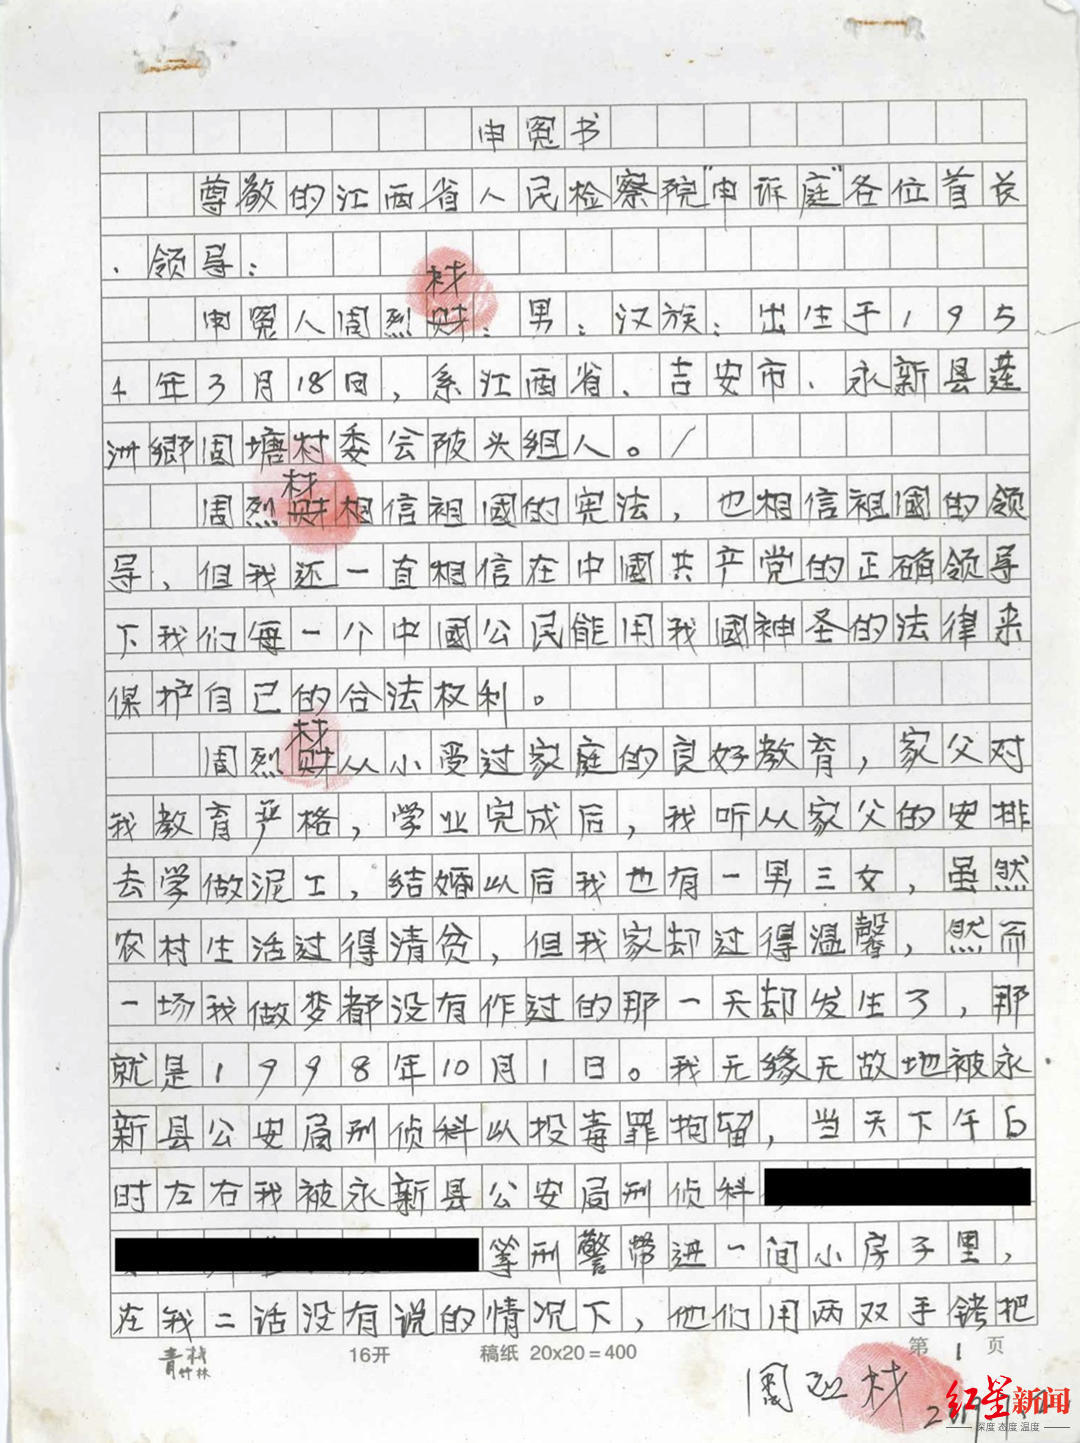 申冤书
尊敬的江西省人民检察院"申诉庭"各位首长
、领导：
材
申冤人周烈财：男：汉族：出生于195
4年3月18日，系江西省、吉安市、永新县莲
洲鄉周塘村委会陂头组人。
材
周烈财相信祖國的宪法，也相信祖國的领
导，但我还一直相信在中國共产党的正确领导
下我们每一个中國公民能用我國神圣的法律来
保护自己的合法权利。
材
周烈财从小受过家庭的良好教育，家父对
我教育严格，学业完成后，我听从家父的安排
去学做泥工，结婚以后我也有一男三女，虽然
农村生活过得清贫，但我家却过得温馨，然而
一场我做梦都没有作过的那一天却发生了，那
就是1998年10月1日。我无缘无故地被永
新县公安局刑侦科以投毒罪拘留，当天下午
时左右我被永新县公安局刑侦科
等刑警带进一间小房子里，
在我二话没有说的情况下，他们用两双手铐把
16开 稿纸 20x20=400 第1页
周烈材
红星新闻
深度 态度 温度